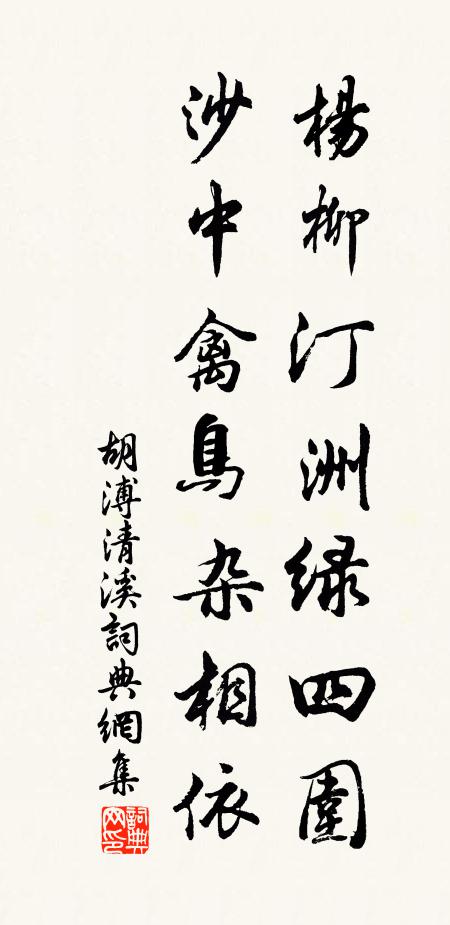 楊柳汀洲緑四圍
沙中禽鳥杂相依
胡溥清溪詞典網集
詞典网印